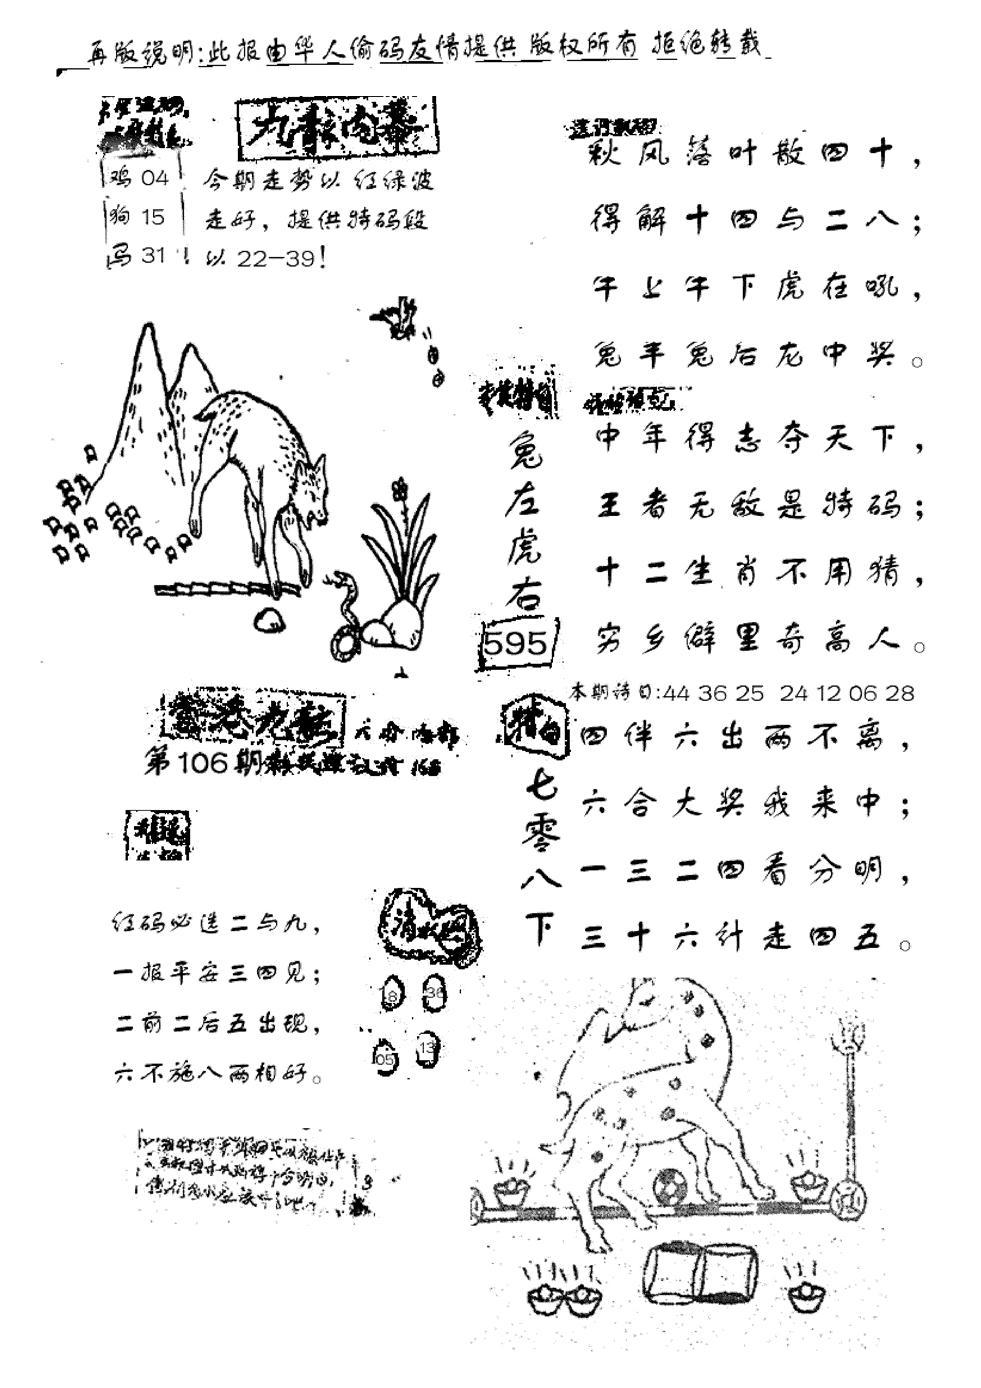 再版说明:此报由华人偷码友情提供 版权所有 拒绝转载
九龍内幕
鸡 04
狗 15
马 31
今期走势以红绿波
走好，提供特码段
以 22—39!
秋风落叶散四十，
得解十四与二八；
牛上牛下虎在吼，
兔羊兔后龙中奖。
兔左虎右
595
中年得志夺天下，
王者无敌是特码；
十二生肖不用猜，
穷乡僻里奇高人。
本期诗曰:44 36 25 24 12 06 28
特曰
七零八下
四伴六出两不离，
六合大奖我来中；
一三二四看分明，
三十六计走四五。
香港九龍
第106期
168
红码必选二与九，
一报平安三四见；
二前二后五出现，
六不施八两相好。
18 36
05 13